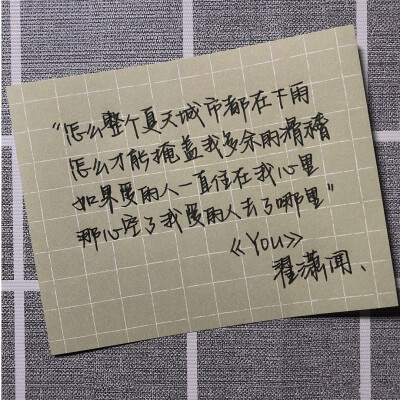 “怎么整个夏天城市都在下雨
怎么才能掩盖我多余的滑稽
如果爱的人一直住在我心里
那心空了我爱的人去了哪里”
《You》
翟潇闻、